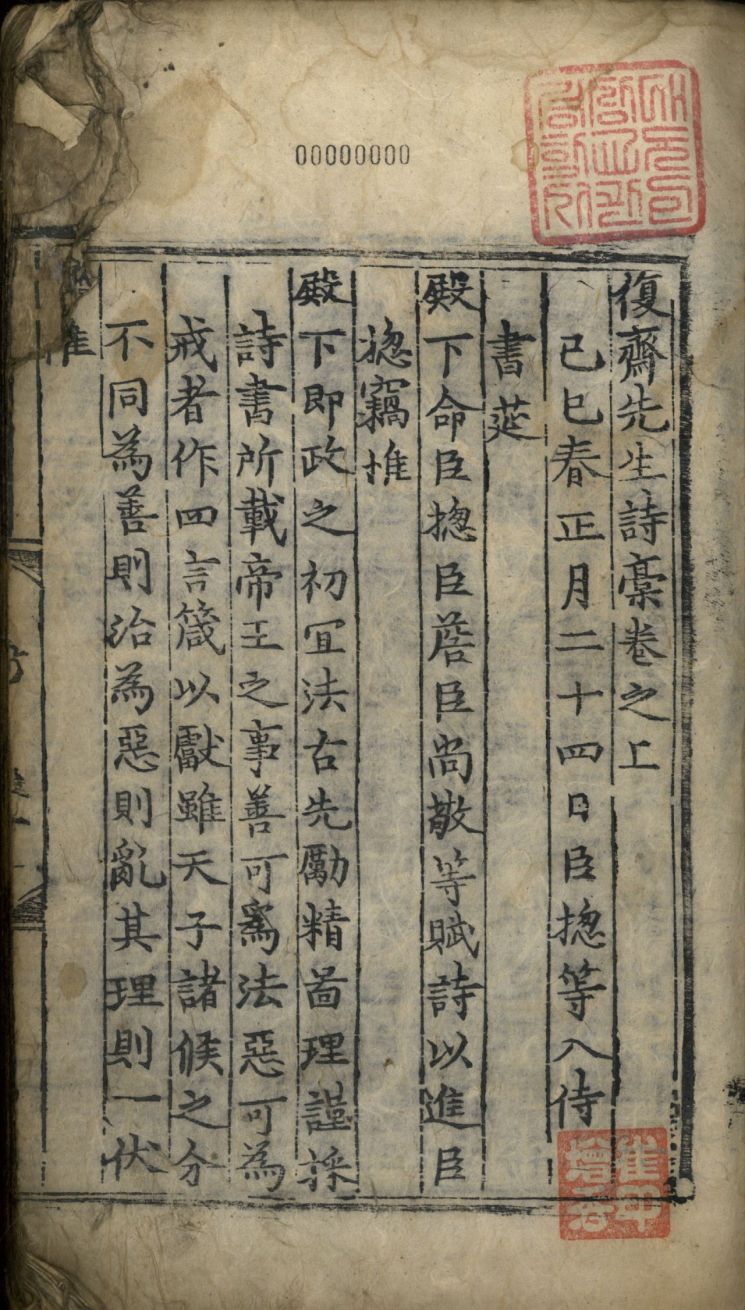 00000000
復齋先生詩藁卷之上
己巳春正月二十四日臣摠等入侍
書莚
殿下命臣摠臣莕臣尙敬等賦詩以進臣
摠竊惟
殿下即政之初冝法古先勵精啚理謹採
詩書所載帝王之事善可為法惡可為
戒者作四言箴以獻雖天子諸候之分
不同為善則治為惡則亂其理則一伏
惟